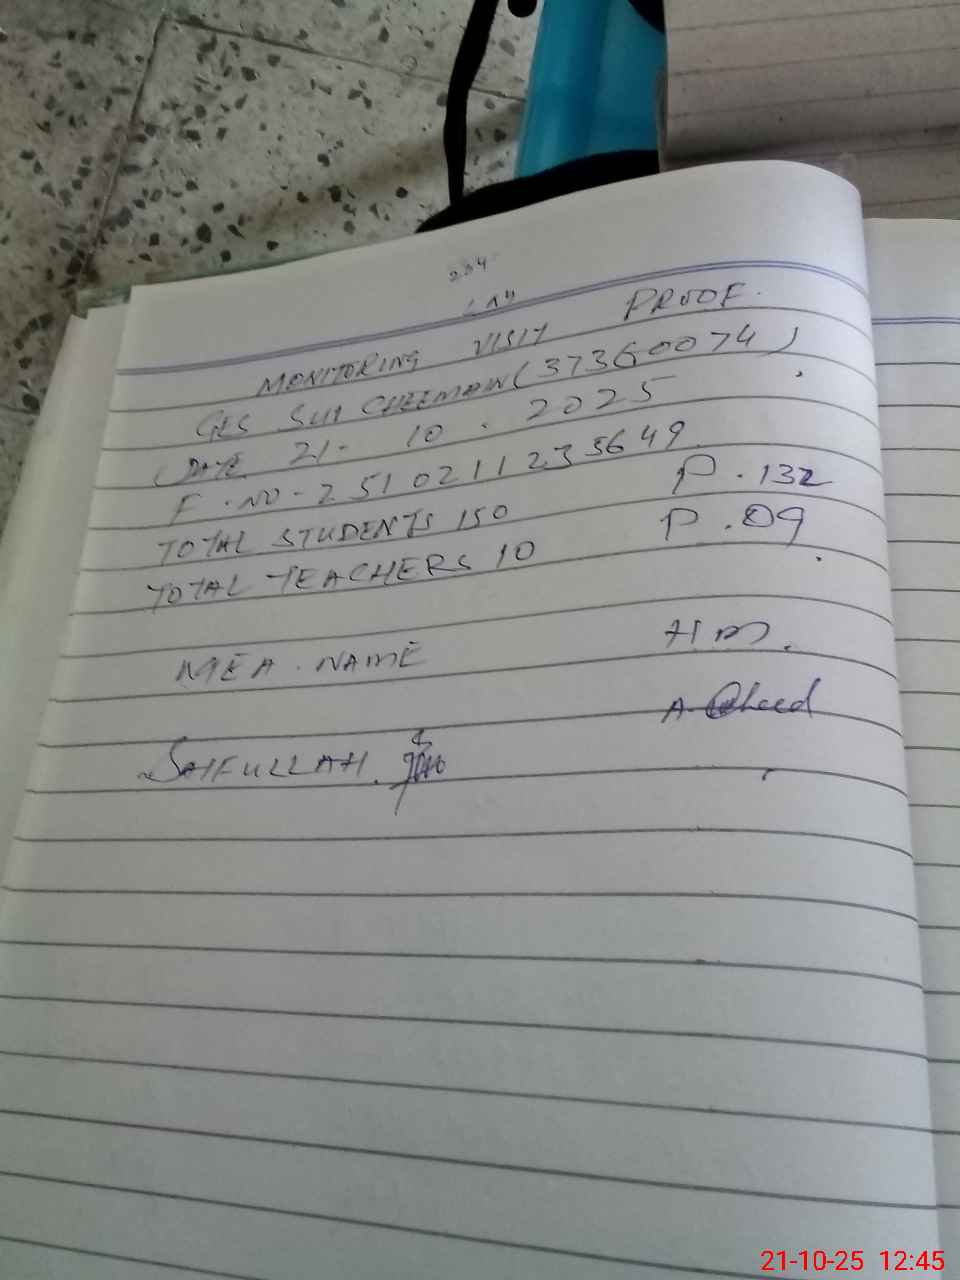 204
MONITORING VISIT PROOF.
GES SUI CHEEMAIN (37360074)
DATE 21-10.2025
F.NO-251021123
TOTAL STUDENTS 150 P.132
TOTAL TEACHERS 10 P.09
MEA.NAME HM.
SAIFULLAH.
21-10-25 12:45